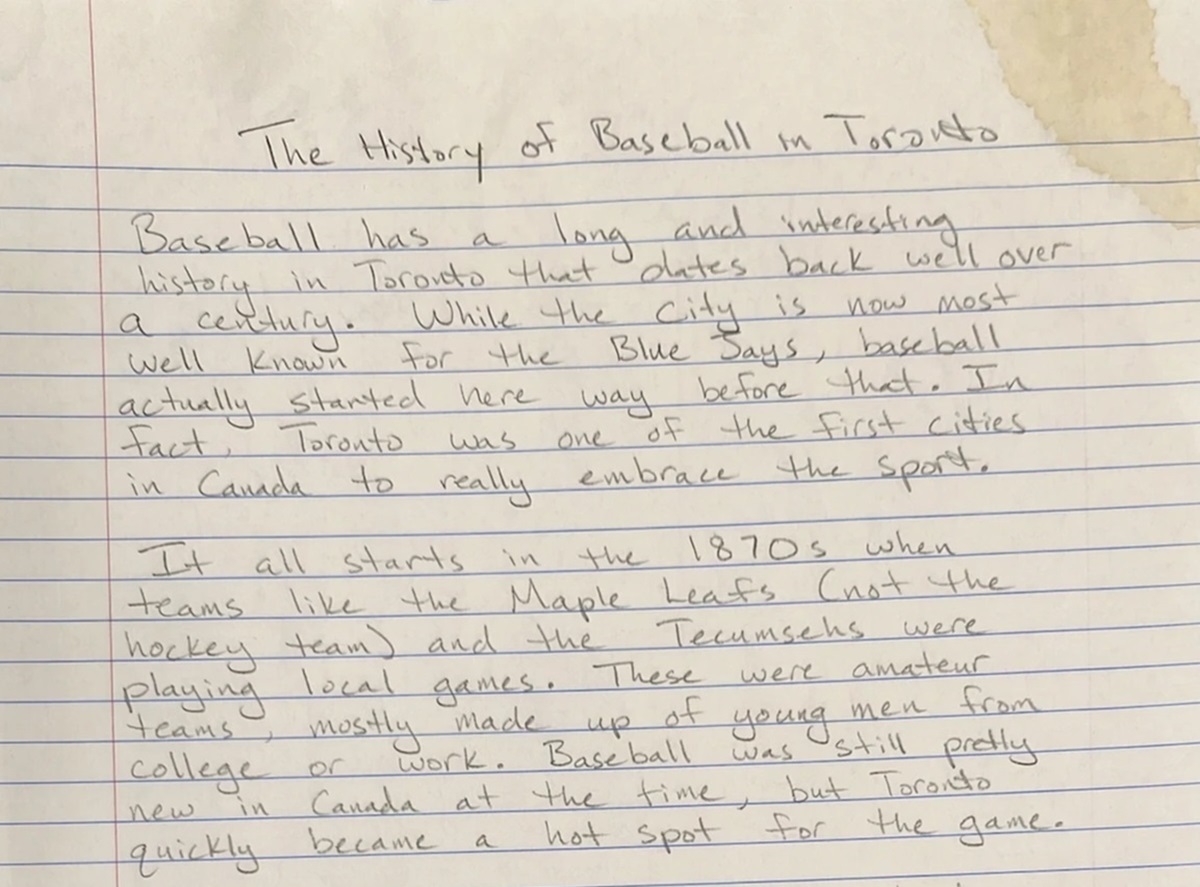 The History of Baseball in Toronto
Baseball has a long and interesting
history in Toronto that dates back well over
a century. While the city is now most
well known for the Blue Jays, baseball
actually started here way before that. In
fact, Toronto was one of the first cities
in Canada to really embrace the sport.
It all starts in the 1870s when
teams like the Maple Leafs (not the
hockey team) and the Tecumsehs were
playing local games. These were amateur
teams, mostly made up of young men from
college or work. Baseball was still pretty
new in Canada at the time, but Toronto
quickly became a hot spot for the game.